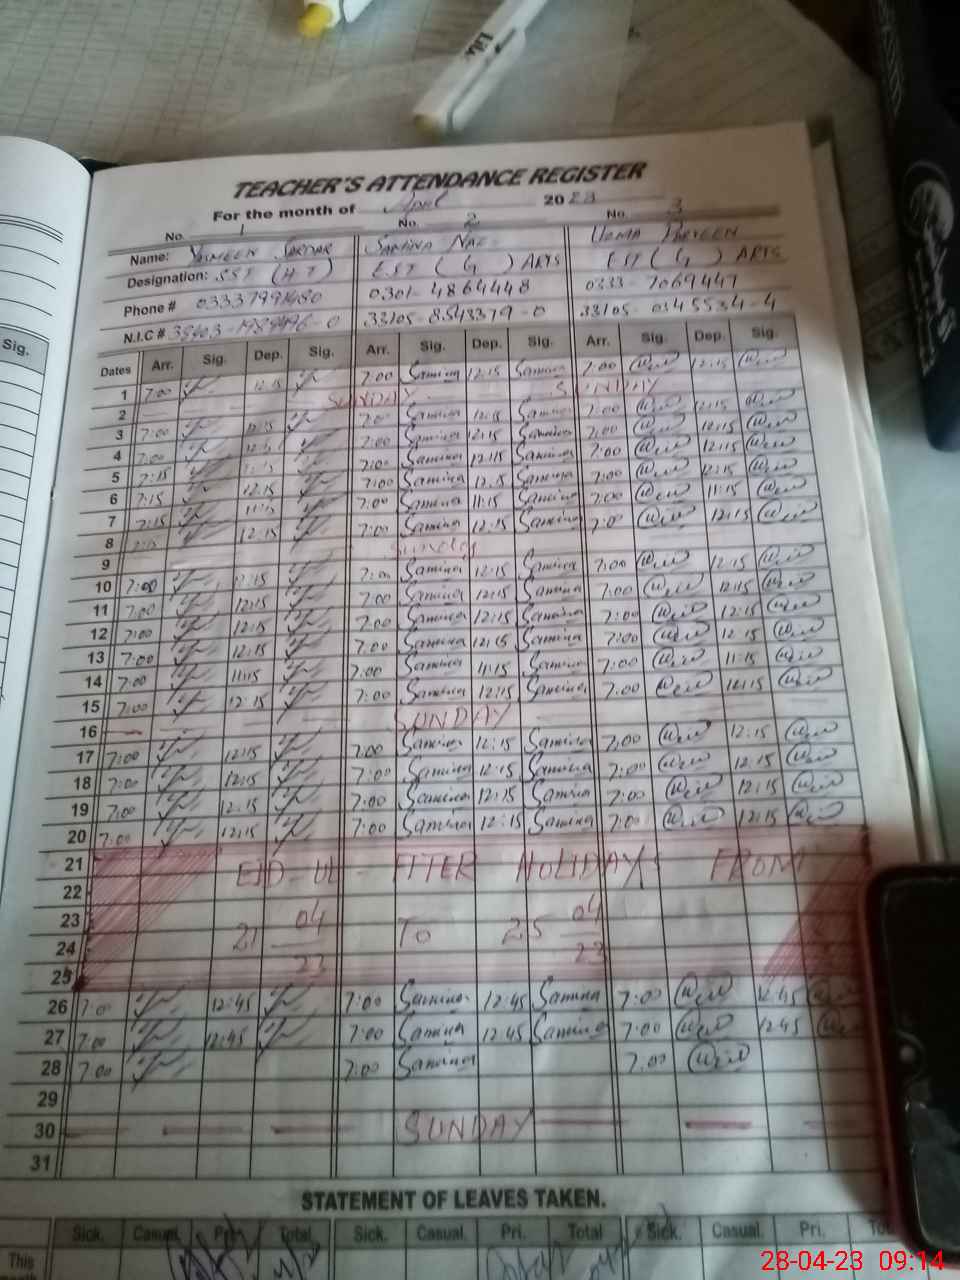 TEACHER'S ATTENDANCE REGISTER
For the month of April 2023
No. 1 No. 2 No. 3
Name: Yasmeen Sardar Samina Naz Uzma Perveen
Designation: SST (H T) EST ( G ) ARTS EST ( G ) ARTS
Phone # 0301-4864448 0333-7069447
N.I.C # 33105-8543379-0 33105-0345534-4
Sig.
Dates Arr. Sig. Dep. Sig. Arr. Sig. Dep. Sig. Arr. Sig. Dep. Sig.
1 7:00 12:15 7:00 Samina 12:15 Samina 7:00 12:15
2 SUNDAY SUNDAY
3 7:00 12:15 7:00 Samina 12:15 Samina 7:00 12:15
4 7:00 7:00 Samina 12:15 Samina 7:00 12:15
5 7:15 7:00 Samina 12:15 Samina 7:00 12:15
6 7:15 12:15 7:00 Samina 12:15 Samina 7:00 12:15
7 7:15 11:15 7:00 Samina 11:15 Samina 7:00 11:15
8 12:15 7:00 Samina 12:15 Samina 7:00 12:15
9 Sunday
10 7:00 12:15 7:00 Samina 12:15 Samina 7:00 12:15
11 7:00 12:15 7:00 Samina 12:15 Samina 7:00 12:15
12 7:00 12:15 7:00 Samina 12:15 Samina 7:00 12:15
13 7:00 12:15 7:00 Samina 12:15 Samina 7:00 12:15
14 7:00 11:15 7:00 Samina 11:15 Samina 7:00 11:15
15 7:00 12:15 7:00 Samina 12:15 Samina 7:00
16 SUNDAY
17 7:00 12:15 7:00 Samina 12:15 Samina 7:00 12:15
18 7:00 12:15 7:00 Samina 12:15 Samina 7:00 12:15
19 7:00 12:15 7:00 Samina 12:15 Samina 7:00 12:15
20 7:00 12:15 7:00 Samina 12:15 Samina 7:00 12:15
21 EID-UL-FITER HOLIDAY FROM
22
23 21 04 To 25 04
24 23 23
25
26 7:00 12:45 7:00 Samina 12:45 Samina 7:00 12:45
27 7:00 12:45 7:00 Samina 12:45 Samina 7:00 12:45
28 7:00 7:00 Samina 7:00
29
30 SUNDAY
31
STATEMENT OF LEAVES TAKEN.
Sick. Casual. Pri. Total Sick. Casual. Pri. Total Sick. Casual. Pri.
This
month
28-04-23 09:14